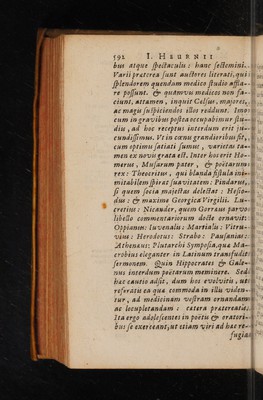 592 I. HEURNII
bus atque spectaculis: hanc sectemini.
Varii præterea sunt auctores literati, qui
splendorem quendam medico studio affla-
re possunt. & quamvis medicos non fa-
ciunt, attamen, inquit Celsus, majores,
ac magis suspiciendos illos reddunt. Imo
cum in gravibus postea occupabimur stu-
diis, ad hoc receptus interdum erit ju-
cundissimus. Ut in cœnis grandioribus fit,
cum optimis satiati sumus, varietas ta-
men ex novo grata est. Inter hos erit Ho-
merus, Musarum pater, & poëtarum
rex: Theocritus, qui blanda fistula ini-
mitabilem spirat suavitatem: Pindarus,
si quem socia majestas delectat: Hesio-
dus: & maxime Georgica Virgilii. Lu-
cretius: Nicander, quem Gorræus parvo
libello commentariorum docte ornavit:
Oppianus: Iuvenalis: Martialis: Vitru-
vius: Herodotus: Strabo: Pausanias:
Athenæus: Plutarchi Symposia, quæ Ma-
crobius eleganter in Latinum transfudit
sermonem. Quin Hippocrates & Gale-
nus interdum poëtarum meminere. Sed
hæc cautio adsit, dum hos evolvitis, ut
referatis ea quæ commoda in illis viden-
tur, ad medicinam vestram ornandam
ac locupletandam: cætera prætereatis.
Ita ergo adolescentes in poëtis & oratori-
bus se exerceant, ut etiam viri ad hæc re-
fugiant